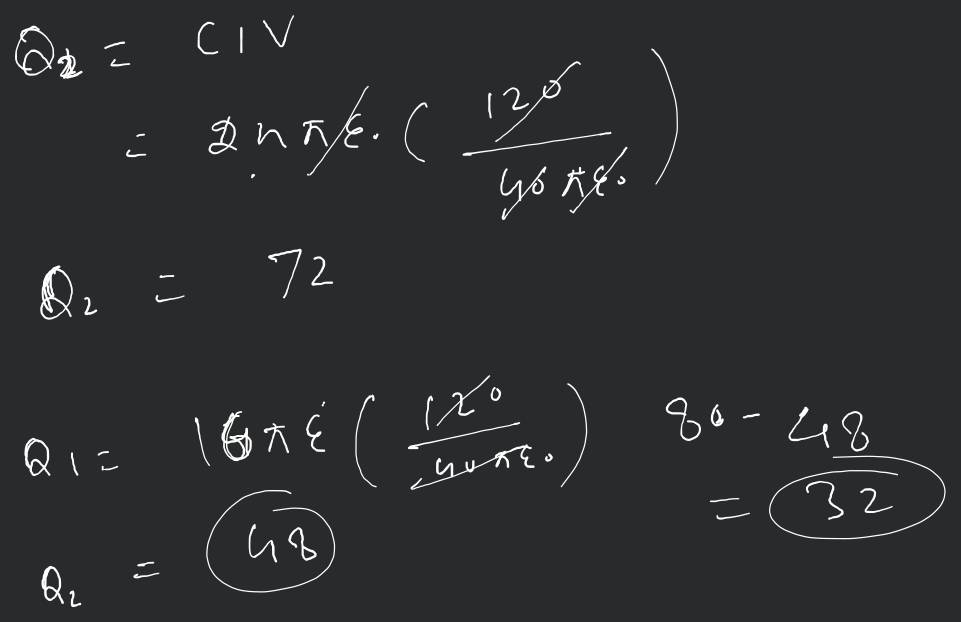 Q2 = C1V
= 24πε0 ( 120 / 40πε0 )
Q2 = 72
Q1 = 16πε ( 120 / 40πε0 )
80 - 48
= 32
Q2 = 48